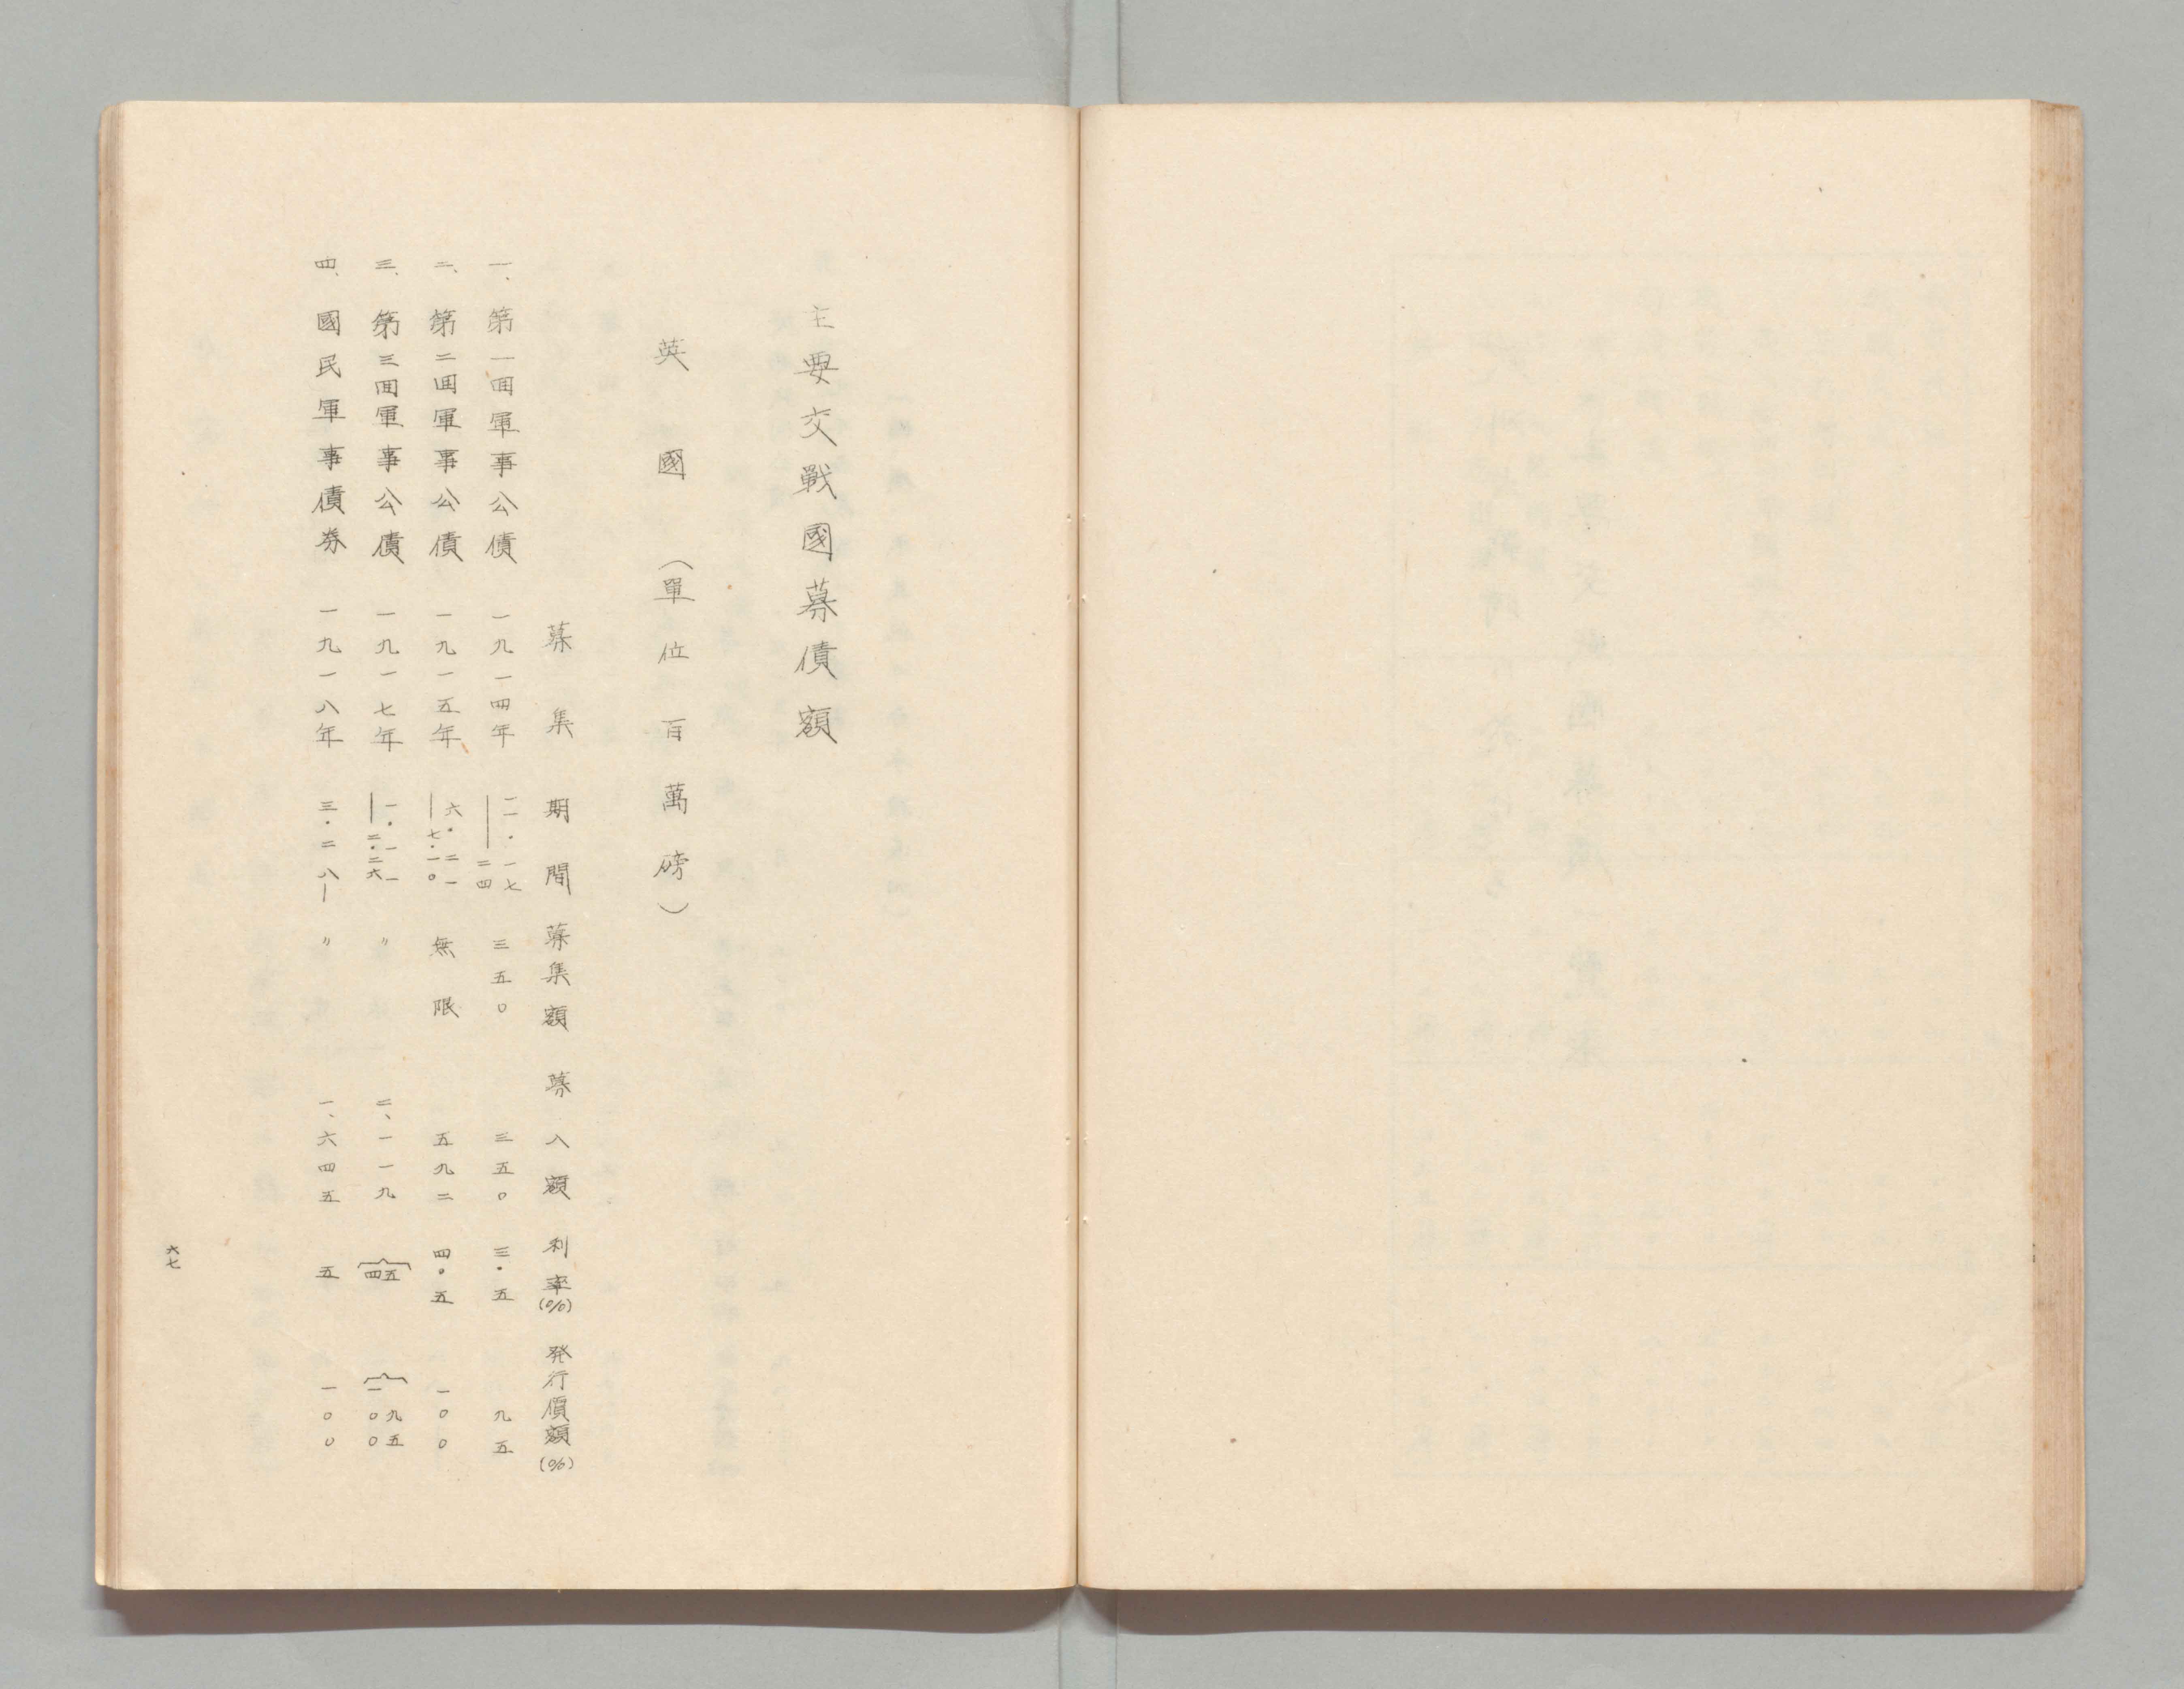 主要交戰國募債額
英國（單位百萬磅）
募集期間 募集額 募入額 利率(%) 発行價額(%)
一、第一回軍事公債 一九一四年 一一・一七―二四 三五〇 三五〇 三・五 九五
二、第二回軍事公債 一九一五年 六・二一―七・一〇 無限 五九二 四・五 一〇〇
三、第三回軍事公債 一九一七年 一・一一―二・二六 〃 二、一一九 {五 四 {九五 一〇〇
四、國民軍事債券 一九一八年 三・二八― 〃 一、六四五 五 一〇〇
六七